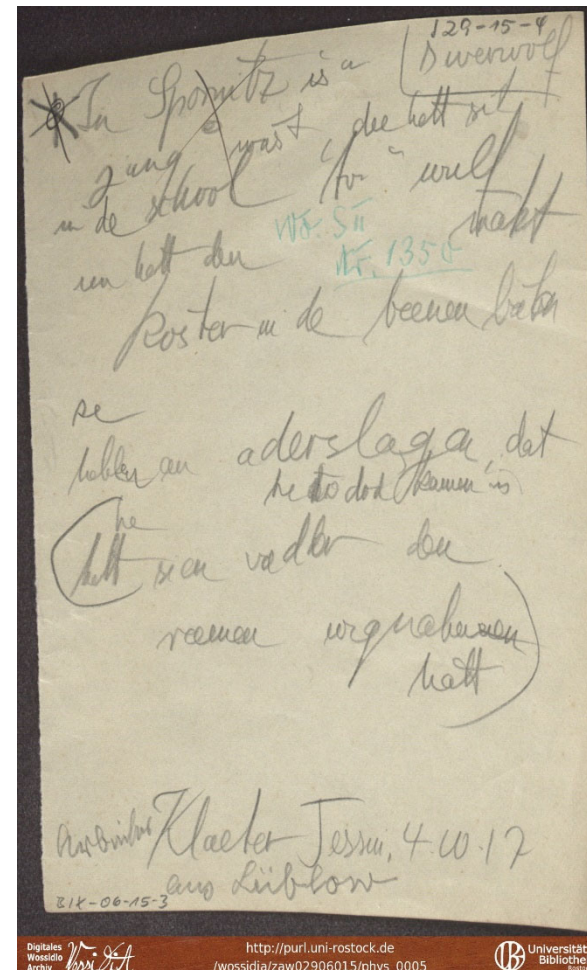 129-15-4
Werwolf
In Spornitz is a
jung wäst, dee hett sik
in de school to'n wulf
makt
un hett den
WS. SII
Nr. 1350
Köster in de beenen bäten
se
hebben an aderslagen, dat
he to dod kamen is
he
hett sien vadder den
reemen wegnahmen
hatt
Arbeiter Klaeter Jessin, 4.10.17
aus Lüblow
BIX-06-15-3
Digitales
Wossidlo
Archiv
http://purl.uni-rostock.de
/wossidia/zaw02906015/phys_0005
Universität
Bibliothe